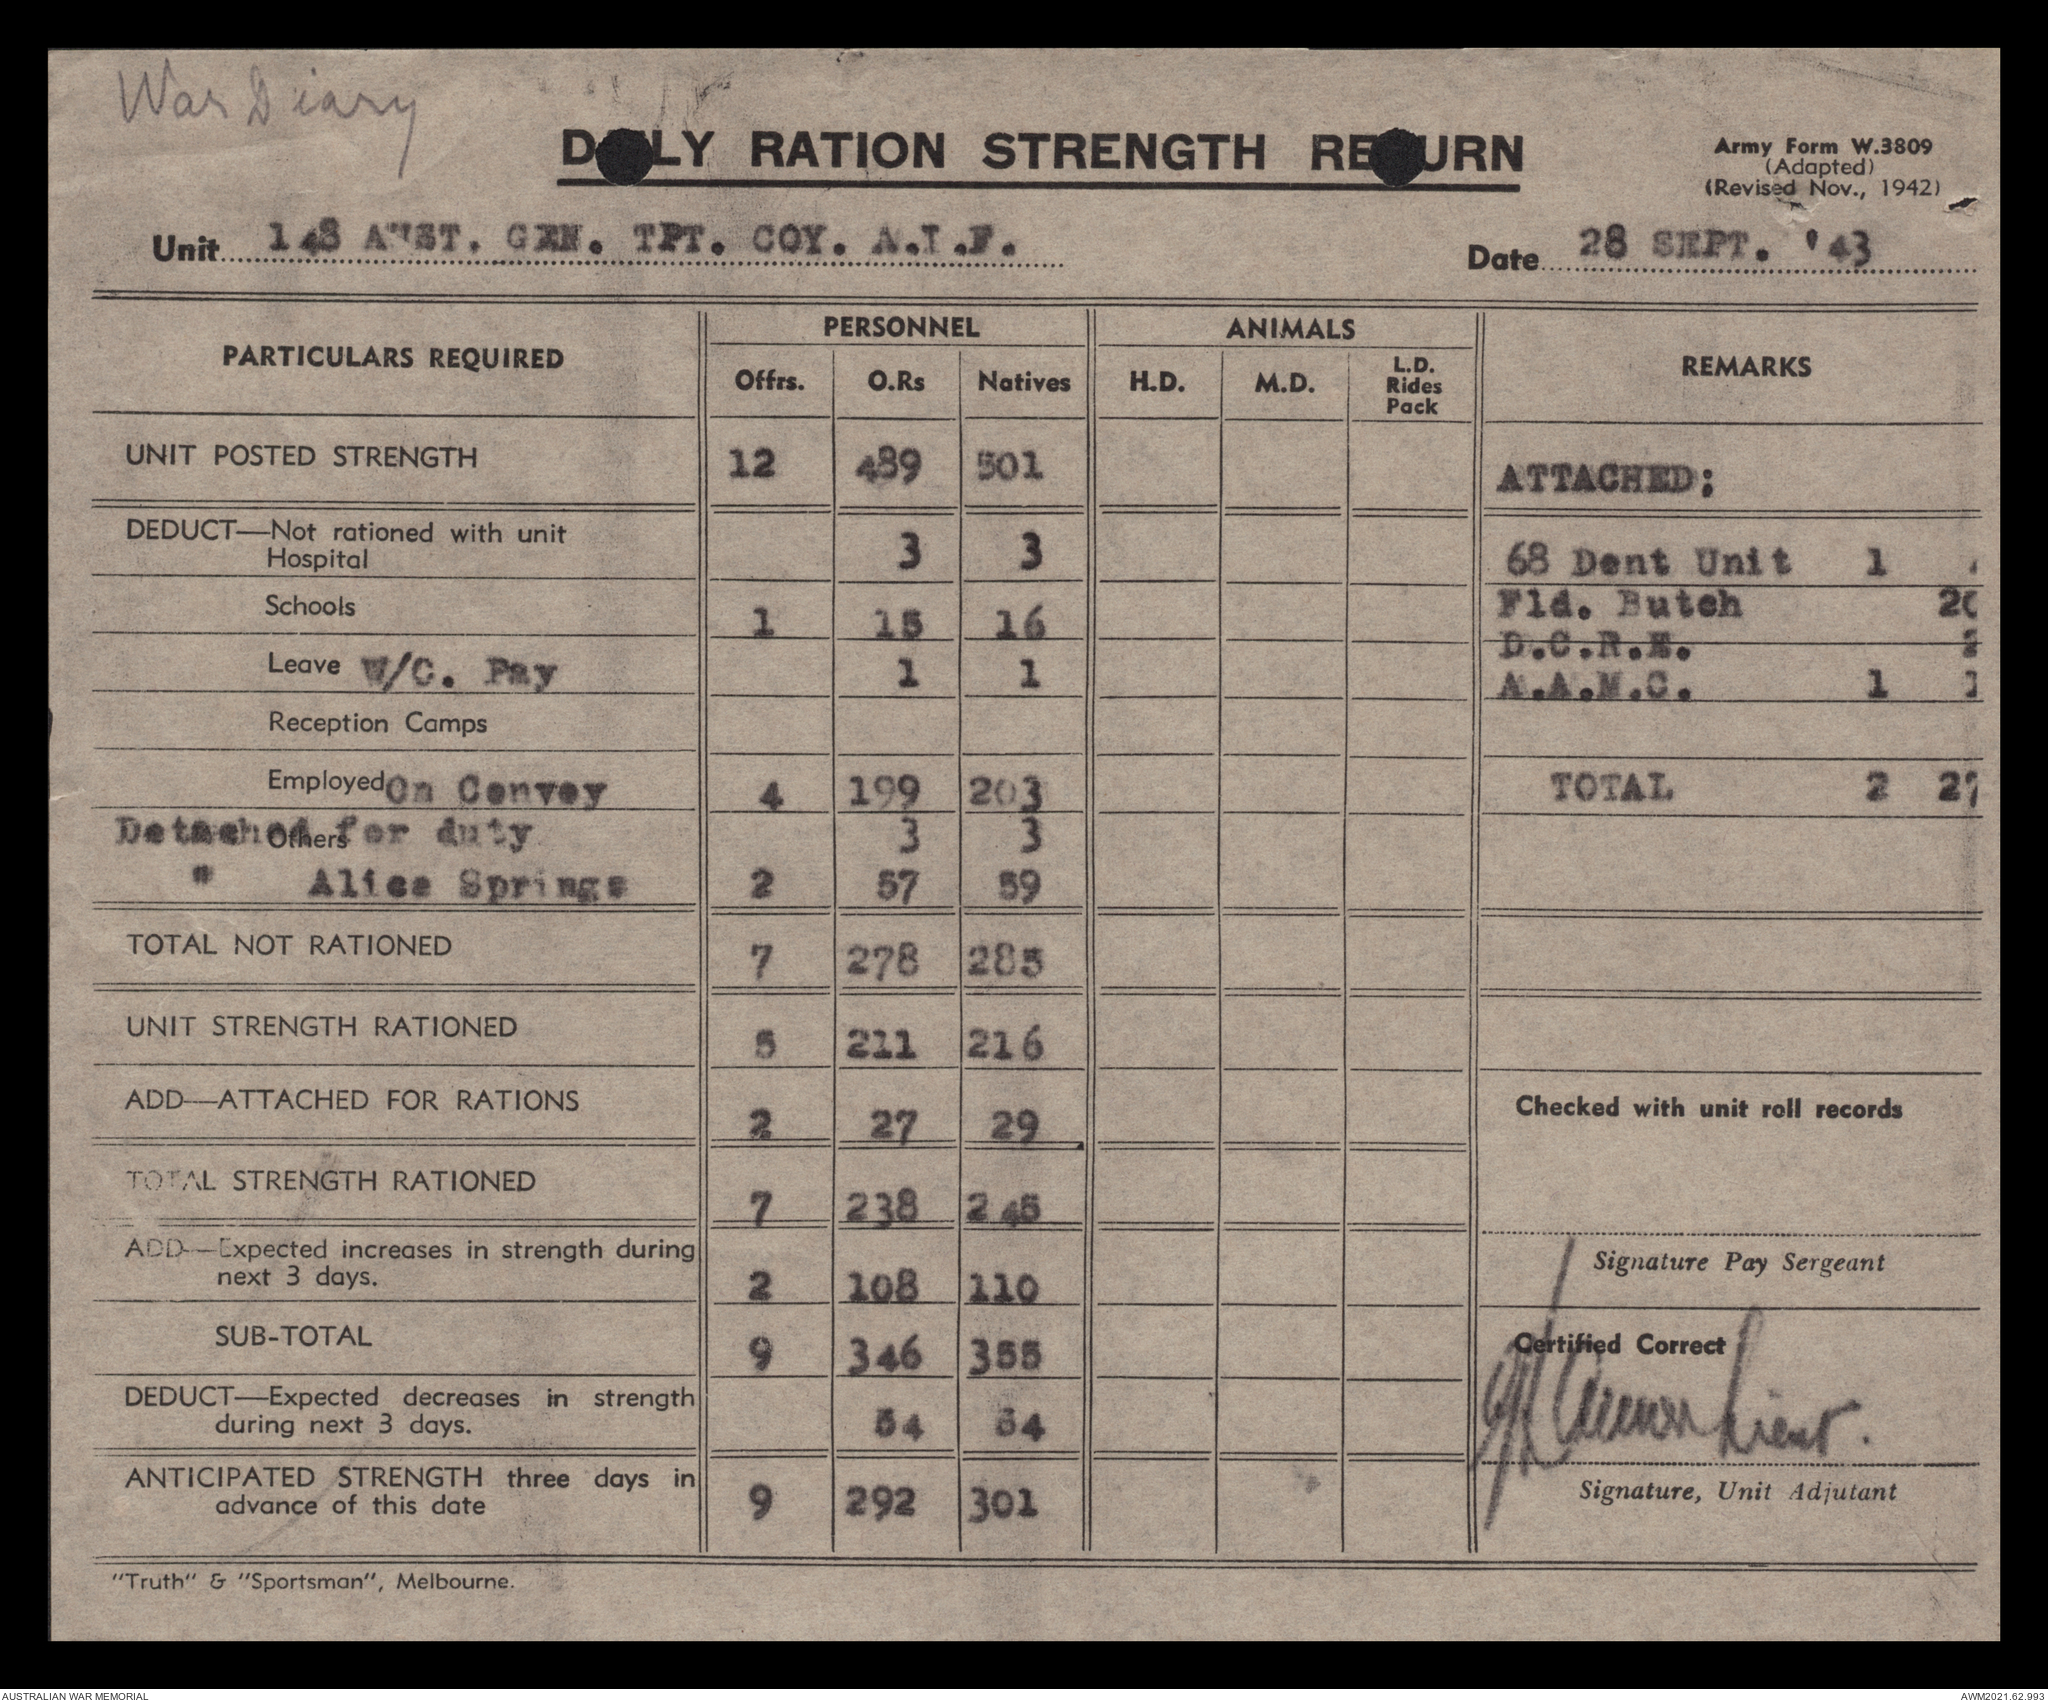 War Diary
DAILY RATION STRENGTH RETURN
Army Form W.3809
(Adapted)
(Revised Nov., 1942)
Unit 148 AUST. GEN. TPT. COY. A.I.F.
Date 28 SEPT. '43
PARTICULARS REQUIRED
PERSONNEL
ANIMALS
REMARKS
Offrs. O.Rs Natives H.D. M.D. L.D. Rides Pack
UNIT POSTED STRENGTH 12 489 501 ATTACHED;
DEDUCT—Not rationed with unit
Hospital 3 3 68 Dent Unit 1
Schools 1 15 16 Fld. Butch 20
D.C.R.E. 2
Leave W/C. Pay 1 1 A.A.M.C. 1 1
Reception Camps
Employed On Convoy 4 199 203 TOTAL 2 27
Others Detached for duty 3 3
" Alice Springs 2 57 59
TOTAL NOT RATIONED 7 278 285
UNIT STRENGTH RATIONED 5 211 216
ADD—ATTACHED FOR RATIONS 2 27 29 Checked with unit roll records
TOTAL STRENGTH RATIONED 7 238 245
ADD—Expected increases in strength during
next 3 days. 2 108 110 Signature Pay Sergeant
SUB-TOTAL 9 346 355 Certified Correct
DEDUCT—Expected decreases in strength
during next 3 days. 54 54 Lieut.
ANTICIPATED STRENGTH three days in
advance of this date 9 292 301 Signature, Unit Adjutant
"Truth" & "Sportsman", Melbourne.
AUSTRALIAN WAR MEMORIAL
AWM2021.62.993